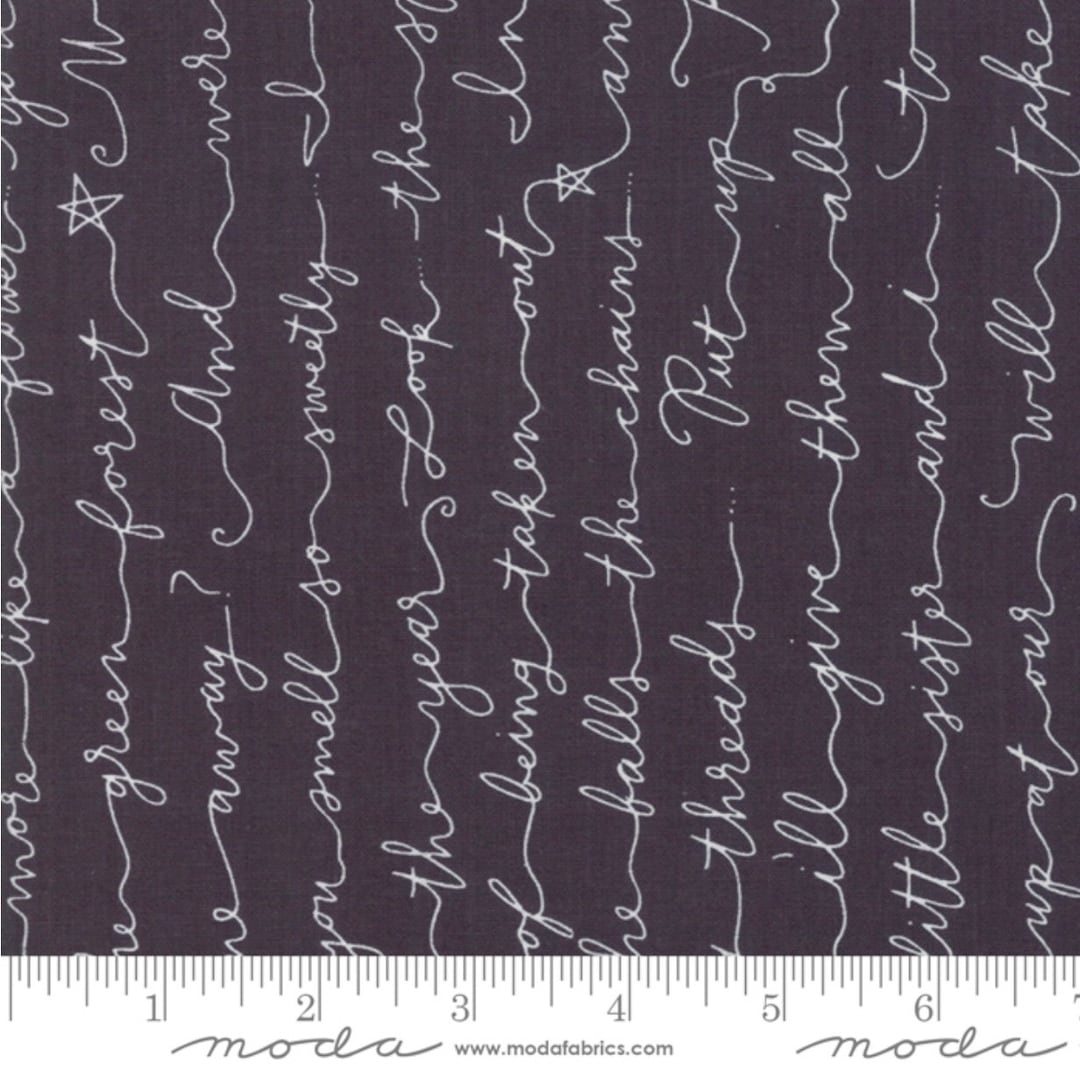 more like a flower ... you
green forest
away? And were
you smell so sweetly ... I
the year Look ... the
of being taken out In
he falls the chains ... and
threads ... Put up
i'll give them all
little sister and i ... to
up at our will take
1 2 3 4 5 6
moda www.modafabrics.com moda